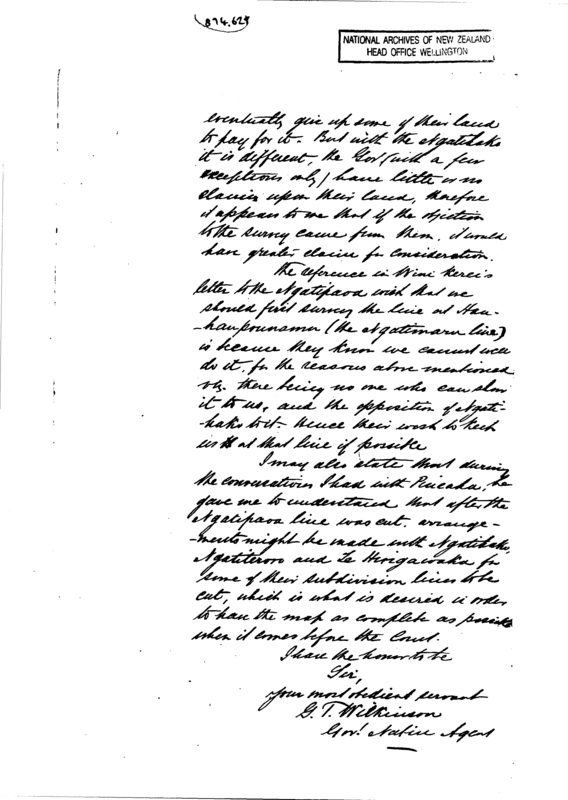 874.624
NATIONAL ARCHIVES OF NEW ZEALAND
HEAD OFFICE WELLINGTON
eventually give up some of their land
to pay for it. But with the Ngatihako
it is different, the Gov.t (with a few
exceptions only) have little or no
claims upon their land, therefore
it appears to me that if the objection
to the survey came from them, it would
have greater claim for consideration.
The reference in Wini Kerei's
letter to the Ngatipaoa wish that we
should first survey the line at Hau-
-haupounamu (the Ngatimaru line)
is because they know we cannot well
do it, for the reasons above mentioned
viz. there being no one who can show
it to us, and the opposition of Ngati-
-hako to it - hence their wish to keep
us at that line if possible
I may also state that during
the conversation I had with he
gave me to understand that after the
Ngatipaoa line was cut, arrange-
-ments might be made with Ngatihako,
and Te for
some of their subdivision lines to be
cut, which is what is desired in order
to have the map as complete as possible
when it comes before the Court.
I have the honor to be
Sir,
your most obedient servant
G. T. Wilkinson
Gov.t Native Agent